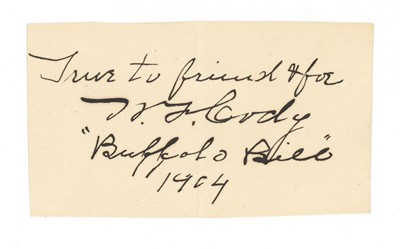 True to friend & foe
W. F. Cody
"Buffalo Bill"
1904